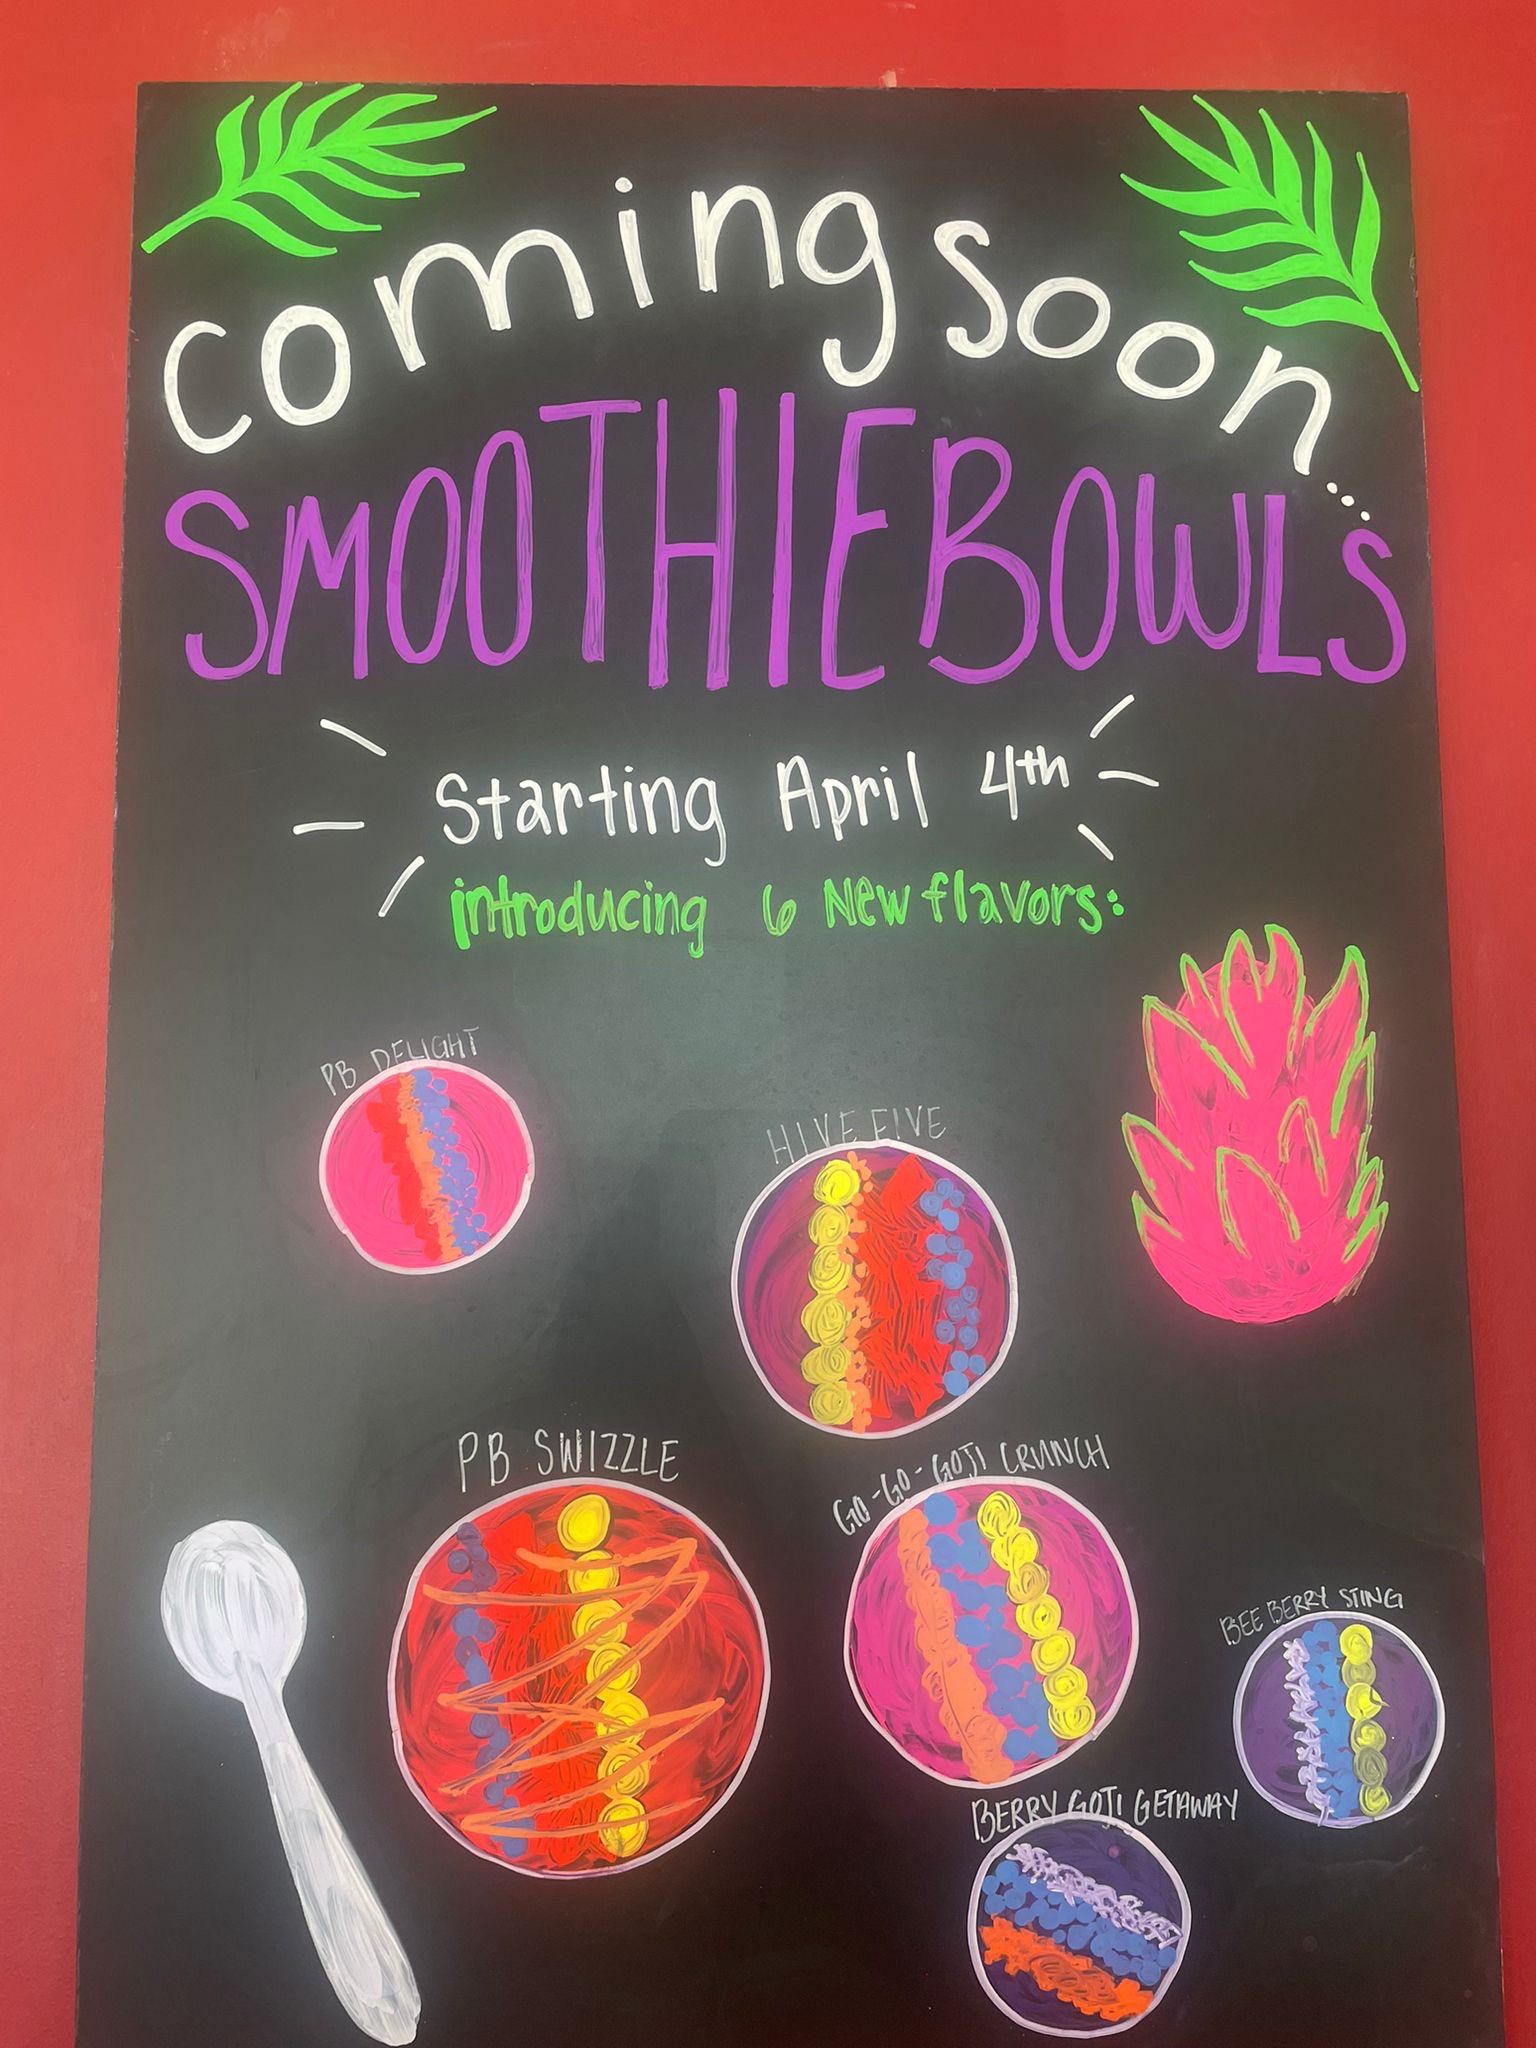 coming soon...
SMOOTHIE BOWLS
Starting April 4th
introducing 6 New flavors:
PB DELIGHT
HIVE FIVE
PB SWIZZLE
GO-GO-GOJI CRUNCH
BEE BERRY STING
BERRY GOJI GETAWAY